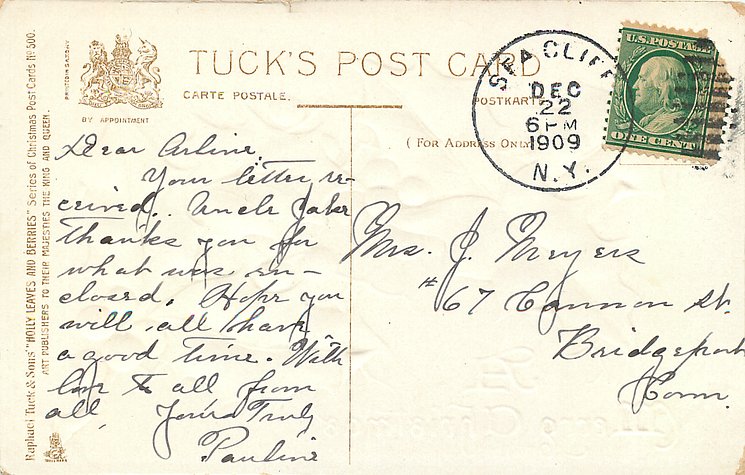 PRINTED IN SAXONY
BY APPOINTMENT
TUCK'S POST CARD
CARTE POSTALE.
POSTKARTE
(FOR ADDRESS ONLY
SEA CLIFF
DEC
22
6 PM
1909
N.Y.
U.S. POSTAGE
ONE CENT
Dear Arline,
Your letter re-
ceived. Uncle Jake
thanks you for
what was en-
closed. Hope you
will all have
a good time. With
love to all from
all, Yours Truly
Pauline
Mrs. J. Meyers
#67 Cannon St.
Bridgeport
Conn.
Raphael Tuck & Sons' "HOLLY LEAVES AND BERRIES" Series of Christmas Post Cards No 500.
ART PUBLISHERS TO THEIR MAJESTIES THE KING AND QUEEN.